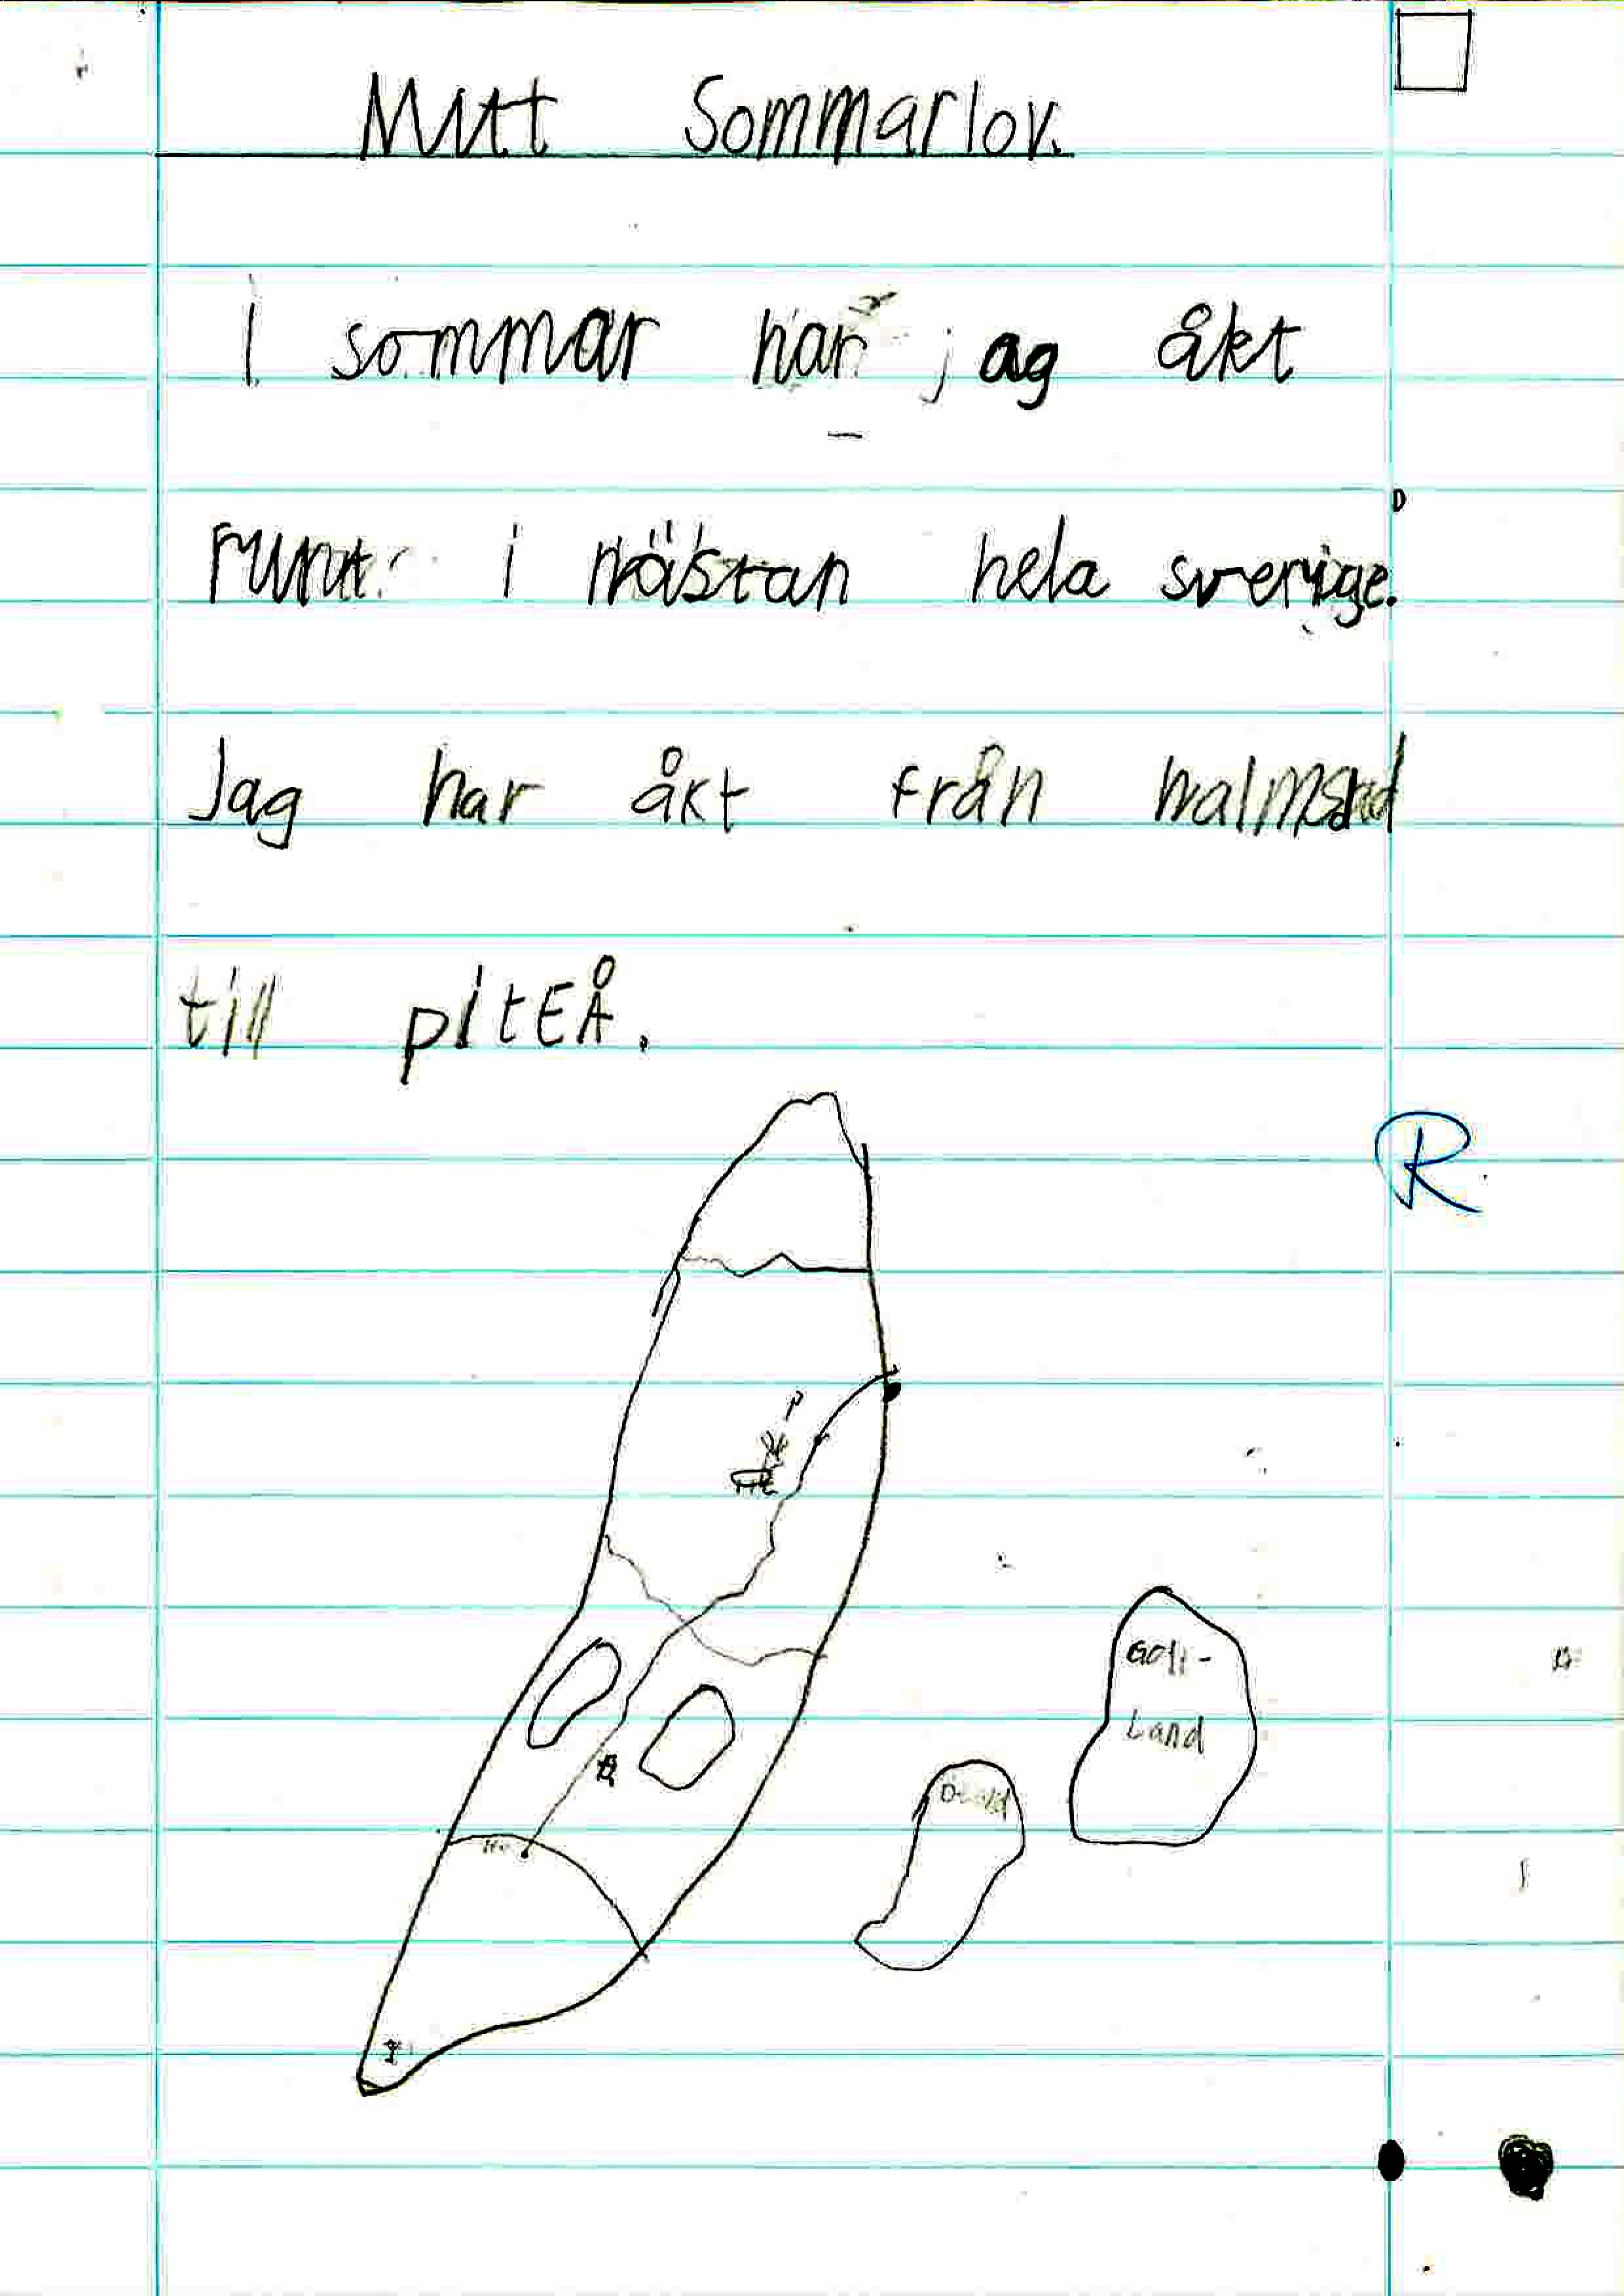 Mitt Sommarlov.
I sommar har jag åkt
runt i nästan hela sverige.
Jag har åkt från halmstad
till pitEÅ.
R
Gott-
Land